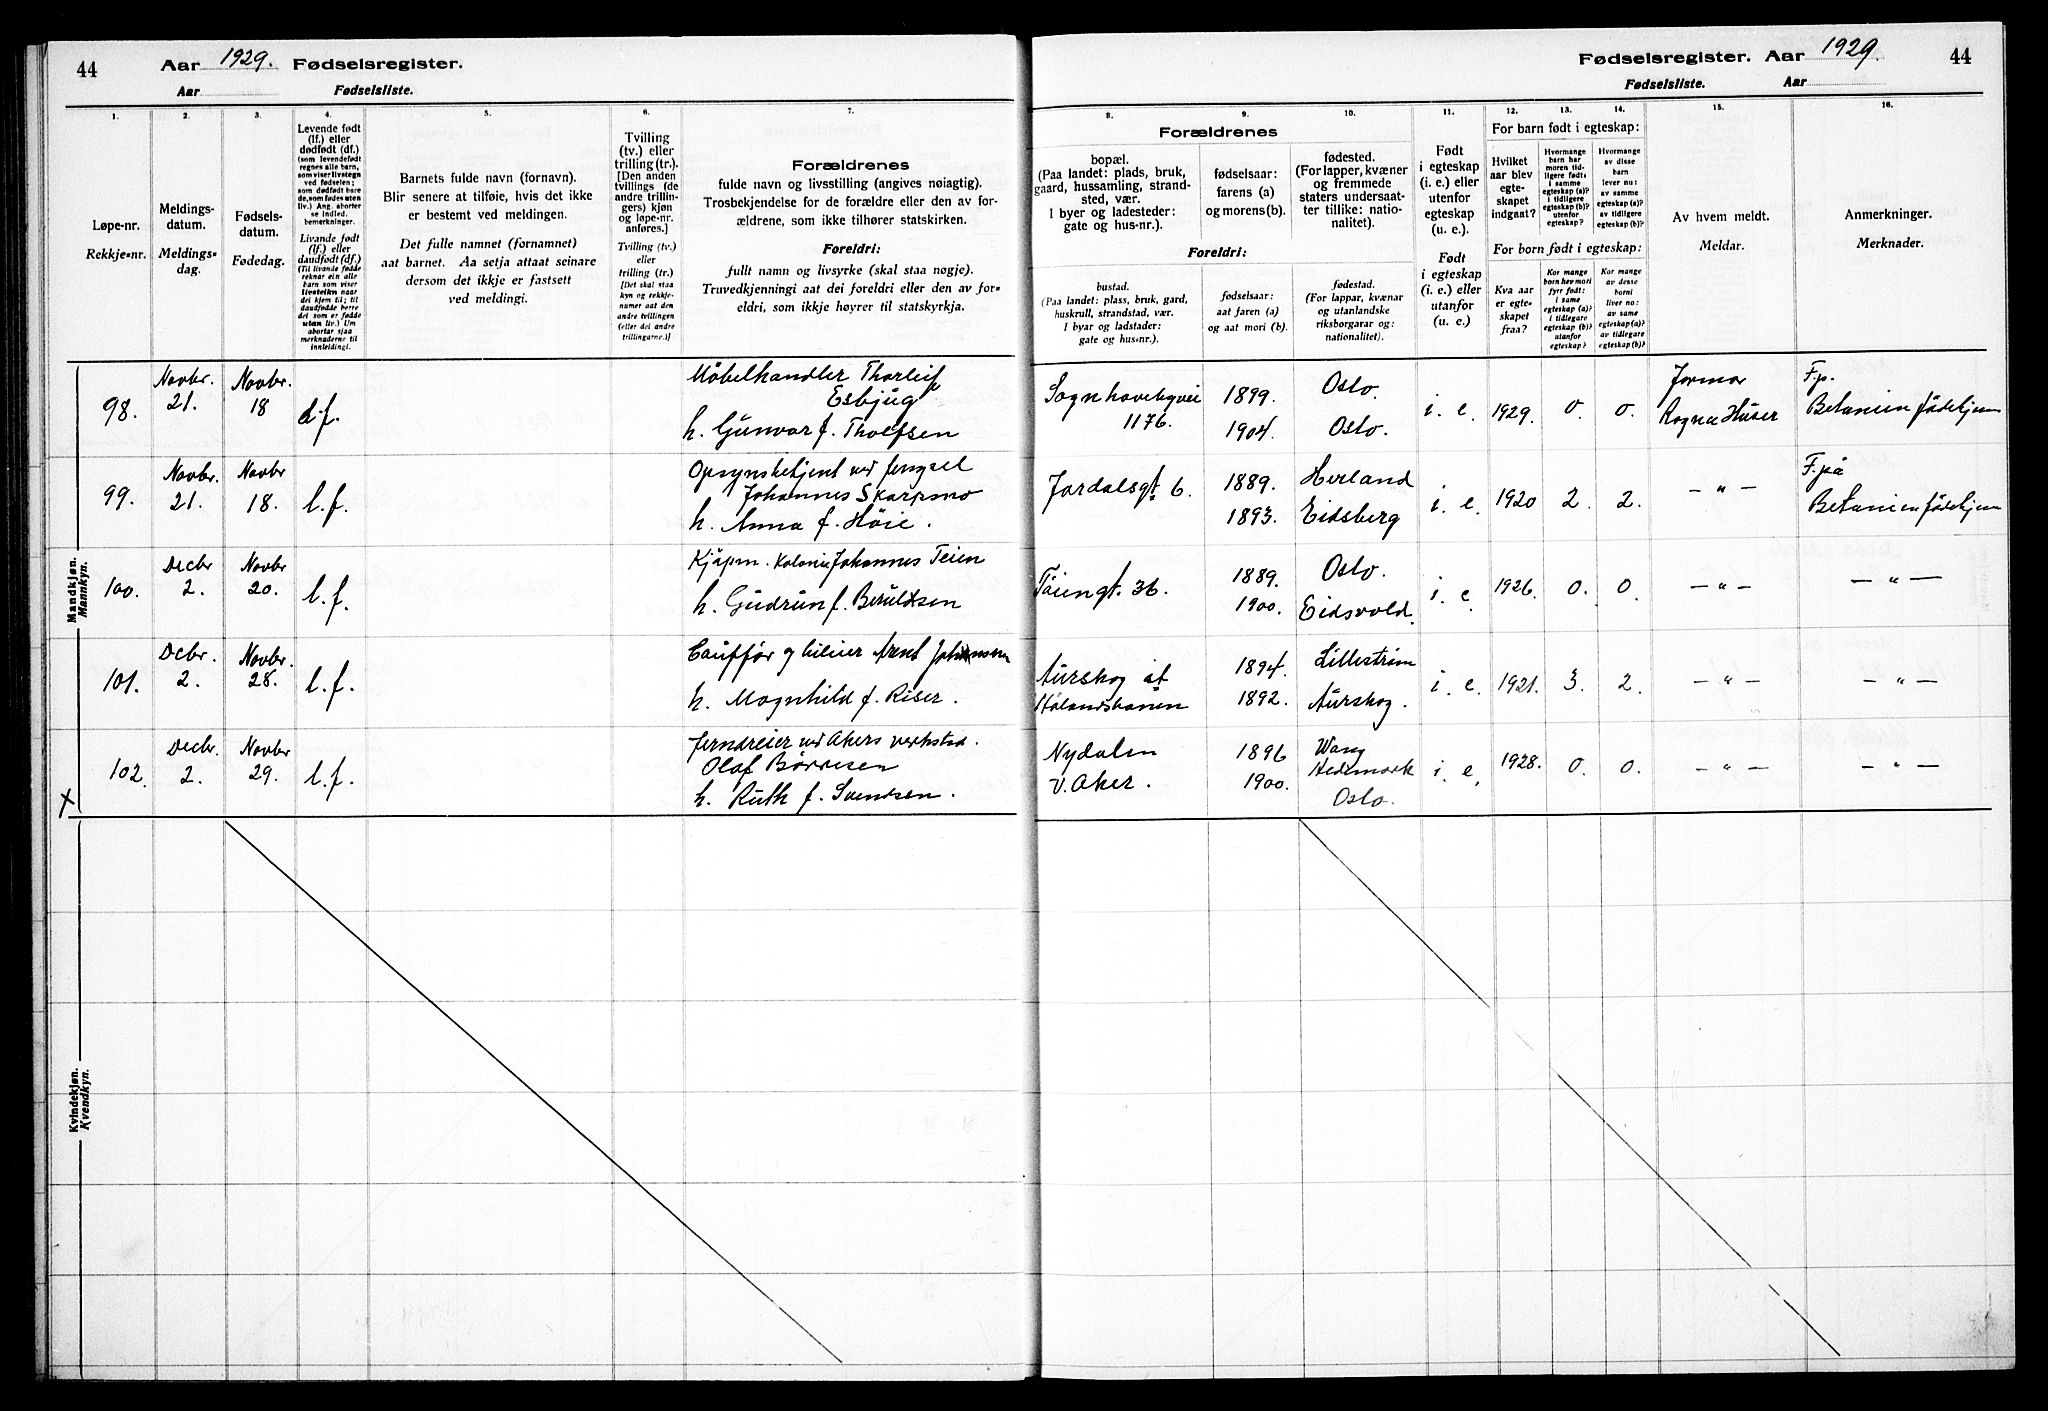 44
Aar 1929. Fødselsregister.
Aar Fødselsliste.
1.
2.
3.
4.
5.
6.
7.
Løpe-nr.
Rekkje-nr.
Meldings-
datum.
Meldings-
dag.
Fødsels-
datum.
Fødedag.
Levende født
(lf.) eller
dødfødt (df.)
(som levendefødt
regnes alle barn,
som viser livstegn
ved fødselen;
som dødfødt bare
de, som fødes uten
liv.) Ang. aborter
se indled.
bemerkninger.
Livande født
(lf.) eller
daudfødt (df.)
(Til livande fødde
reknar ein alle
barn som viser
livsteikn naar
dei kjem til; til
daudfødde berre
dei som er fødde
utan liv.) Um
abortar sjaa
merknaderne til
innleidingi.
Barnets fulde navn (fornavn).
Blir senere at tilføie, hvis det ikke
er bestemt ved meldingen.
Det fulle namnet (fornamnet)
aat barnet. Aa setja attaat seinare
dersom det ikkje er fastsett
ved meldingi.
Tvilling
(tv.) eller
trilling (tr.).
[Den anden
tvillings (de
andre trillin-
gers) kjøn
og løpe-nr.
anføres.]
Tvilling (tv.)
eller
trilling (tr.)
[Det skal staa
kyn og rekkje-
numer aat den
andre tvillingen
(eller dei andre
trillingarne.)]
Forældrenes
fulde navn og livsstilling (angives nøiagtig).
Trosbekjendelse for de forældre eller den av for-
ældrene, som ikke tilhører statskirken.
Foreldri:
fullt namn og livsyrke (skal staa nøgje).
Truvedkjenningi aat dei foreldri eller den av for-
eldri, som ikkje høyrer til statskyrkja.
Mandkjøn.
Mannkyn.
98.
Novbr.
21.
Novbr.
18
d.f.
Møbelhandler Thorleif
Esbjug
h. Gunvor f. Tholfsen
99.
Novbr.
21.
Novbr
18.
l.f.
Opsynsbetjent ved fengsel
Johannes Skarpsno
h. Anna f. Høie.
100.
Decbr
2.
Novbr
20.
l.f.
Kjøpm. Johannes Teien
h. Gudrun f. Beruldsen
101.
Dcbr.
2.
Novbr.
28.
l.f.
Arent Johansen
h. Magnhild f. Riser.
102.
Decbr.
2.
Novbr
29.
l.f.
Jerndreier ved Akers verksted.
Olaf Børresen
h. Ruth f. Svendsen.
X
Kvindekjøn.
Kvendkyn.
Fødselsregister. Aar 1929.
44
Fødselsliste. Aar
8.
9.
10.
11.
12.
13.
14.
15.
16.
Forældrenes
bopæl.
(Paa landet: plads, bruk,
gaard, hussamling, strand-
sted, vær.
I byer og ladesteder:
gate og hus-nr.).
fødselsaar:
farens (a)
og morens (b).
fødested.
(For lapper, kvæner
og fremmede
staters undersaat-
ter tillike: natio-
nalitet).
Foreldri:
bustad.
(Paa landet: plass, bruk, gard,
huskrull, strandstad, vær.
I byar og ladstader:
gate og hus-nr.).
fødselsaar:
aat faren (a)
og aat mori (b).
fødestad.
(For lappar, kvænar
og utanlandske
riksborgarar og:
nationalitet).
Født
i egteskap
(i. e.) eller
utenfor
egteskap
(u. e.).
Født
i egteskap
(i. e.) eller
utanfor
(u. e.)
For barn født i egteskap:
Hvilket
aar blev
egte-
skapet
indgaat?
Hvormange
barn har
moren tid-
ligere født:
i samme
egteskap (a)?
i tidligere
egteskap (b)?
utenfor
egteskap?
Hvormange
av disse
barn
lever nu:
av samme
egteskap (a)?
av tidligere
egteskap (b)?
For born født i egteskap:
Kva aar
er egte-
skapet
fraa?
Kor mange
born hev mori
fyrr født:
i same
egteskap (a)?
i tidlegare
egteskap (b)?
utanfor
egteskap?
Kor mange
av desse
borni
liver no:
av same
egteskap (a)?
av tidlegare
egteskap (b)?
Av hvem meldt.
Meldar.
Anmerkninger.
Merknader.
Sognhaveby vei
1176.
1899.
1904.
Oslo.
Oslo.
i. e.
1929.
0.
0.
Jormor
Ragna Huser
F.p.
Betanien fødehjem
Jordalsgt 6.
1889.
1893.
Herland
Eidsberg
i. e.
1920
2.
2.
— " —
F. på
Betanien fødehjem
Tøiengt. 36.
1889.
1900.
Oslo.
Eidsvold.
i. e
1926.
0.
0.
— " —
— " —
Aurskog st
Hølandsbanen
1894.
1892.
Lillestrøm
Aurskog.
i. e.
1921.
3.
2.
— " —
— " —
Nydalen
V. Aker.
1896
1900.
Wang
Hedemark
Oslo.
i. e.
1928.
0.
0.
— " —
— " —